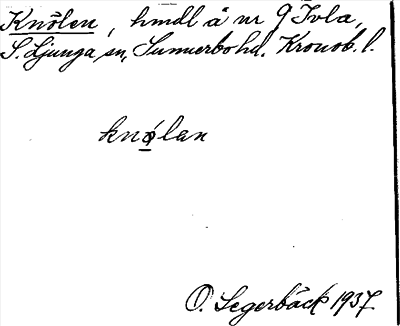 Knölen, hmdl å nr 9 Ivla,
S. Ljunga sn, Sunnerbo hd. Kronob. l.
knǫ́lan
O. Segerbäck 1937.